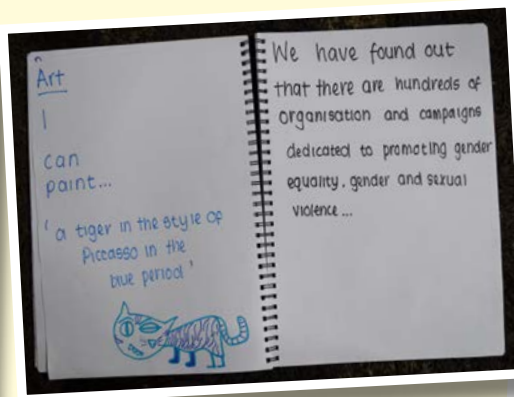 Art
I
can
paint...
'a tiger in the style of
Piccasso in the
blue period'
We have found out
that there are hundreds of
organisation and campaigns
dedicated to promoting gender
equality, gender and sexual
violence...